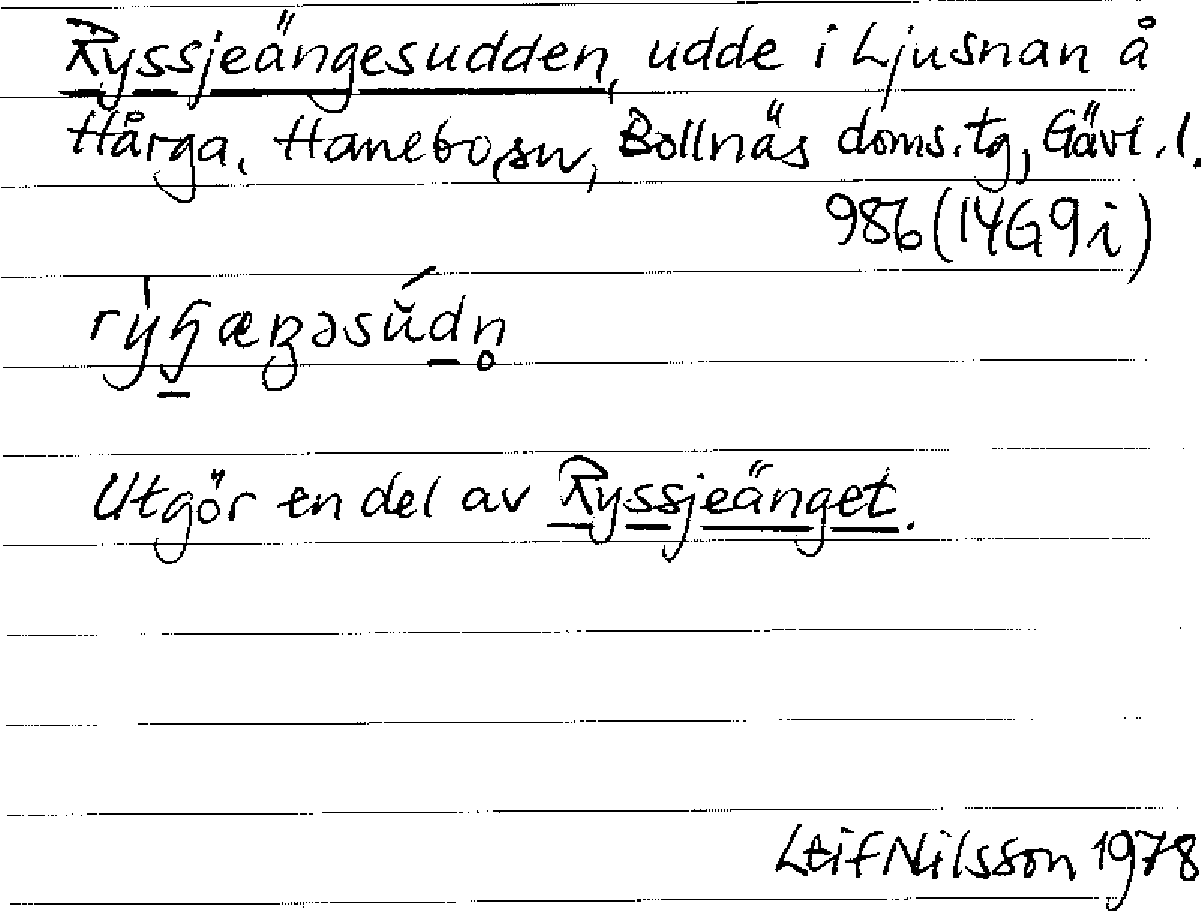 Ryssjeängesudden, udde i Ljusnan å
Hårga, Hanebo sn, Bollnäs doms. tg, Gävl. l.
986 (14G9i)
Utgör en del av Ryssjeänget.
Leif Nilsson 1978